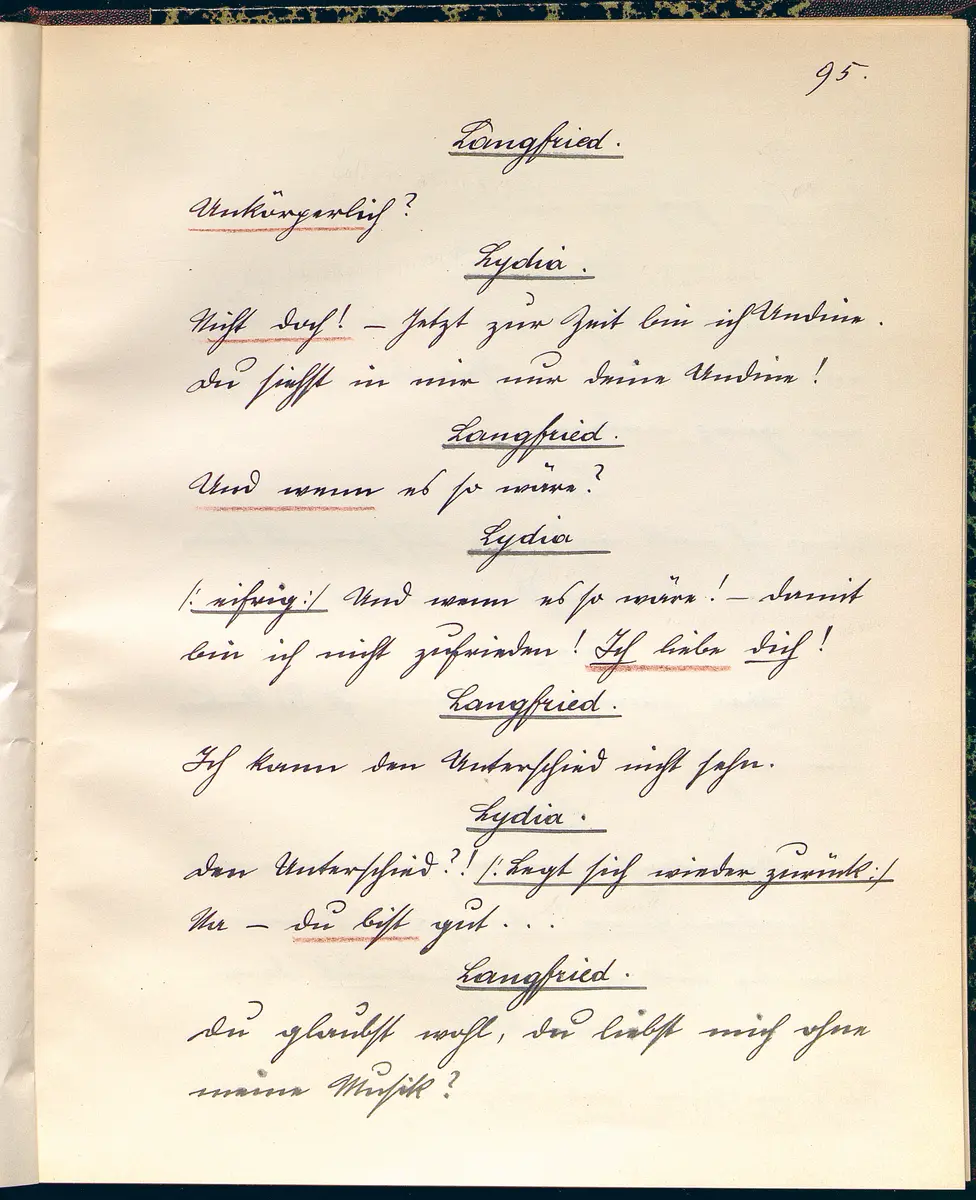 95.
Langfried.
Unkörperlich?
Lydia.
Nicht doch! – Jetzt zur Zeit bin ich Undine.
Du siehst in mir nur deine Undine!
Langfried.
Und wenn es so wäre?
Lydia
/: eifrig :/ Und wenn es so wäre! – damit
bin ich nicht zufrieden! Ich liebe dich!
Langfried.
Ich kann den Unterschied nicht sehn.
Lydia.
Den Unterschied?! /: Legt sich wieder zurück :/
Na – du bist gut...
Langfried.
Du glaubst wohl, du liebst mich ohne
meine Musik?